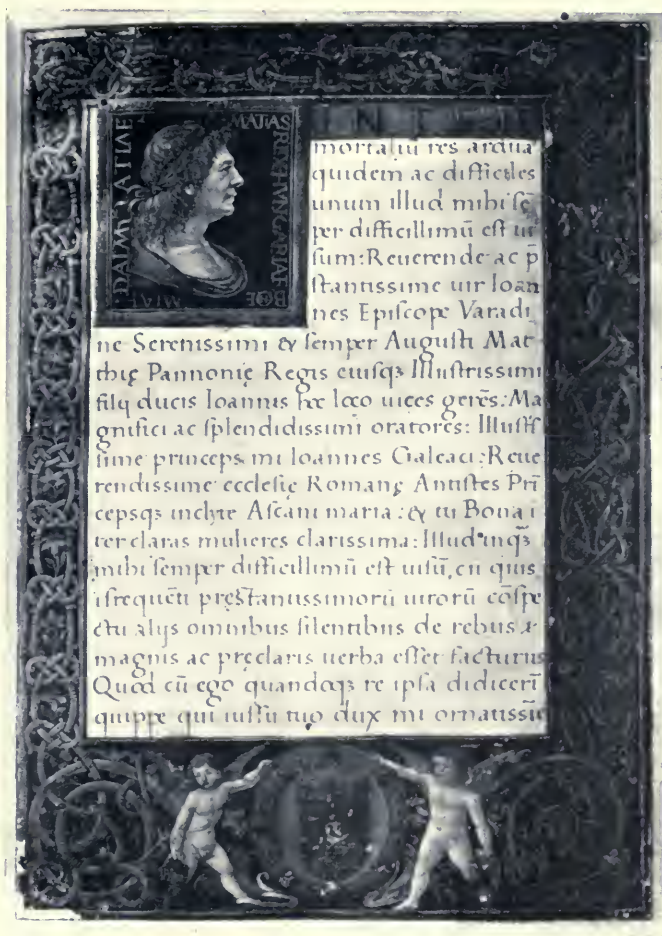 MATIAS REX HVNGARIAE BOEMIAE DALMATIAE
INTER
mortaliū res ardua
quidem ac difficiles
unum illud mihi sē
per difficillimū est ui
sum: Reuerende ac p̄
stantissime uir Ioan
nes Episcope Varadi
ne Serenissimi & semper Augusti Mat
thię Pannonię Regis eiusqꝫ Illustrissimi
filij ducis Ioannis hoc loco uices gerēs: Ma
gnifici ac splendidissimi oratores: Illustris
sime princeps mi Ioannes Galeaci: Reue
rendissime ecclesię Romanę Antistes Prī
cepsqꝫ inclyte Ascani maria: & tu Bona ī
ter claras mulieres clarissima: Illud inqꝫ
mihi semper difficillimū est uisū, cū quis
ī frequēti pręstantissimorū uirorū cōspe
ctu alijs omnibus silentibus de rebus
magnis ac pręclaris uerba esset facturus
Quod cū ego quandoqꝫ re ipsa didicerī
quippe qui iussu tuo dux mi ornatissīe